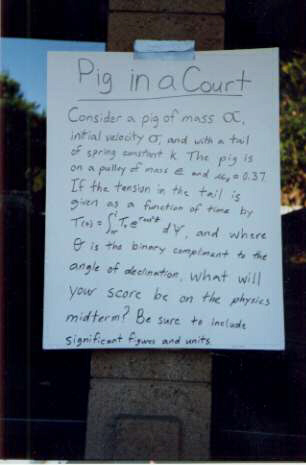 Pig in a Court
Consider a pig of mass α,
initial velocity σ, and with a tail
of spring constant k. The pig is
on a pulley of mass e and
If the tension in the tail is
given as a function of time by
and where
is the binary compliment to the
angle of declination, what will
your score be on the physics
midterm? Be sure to include
significant figures and units.